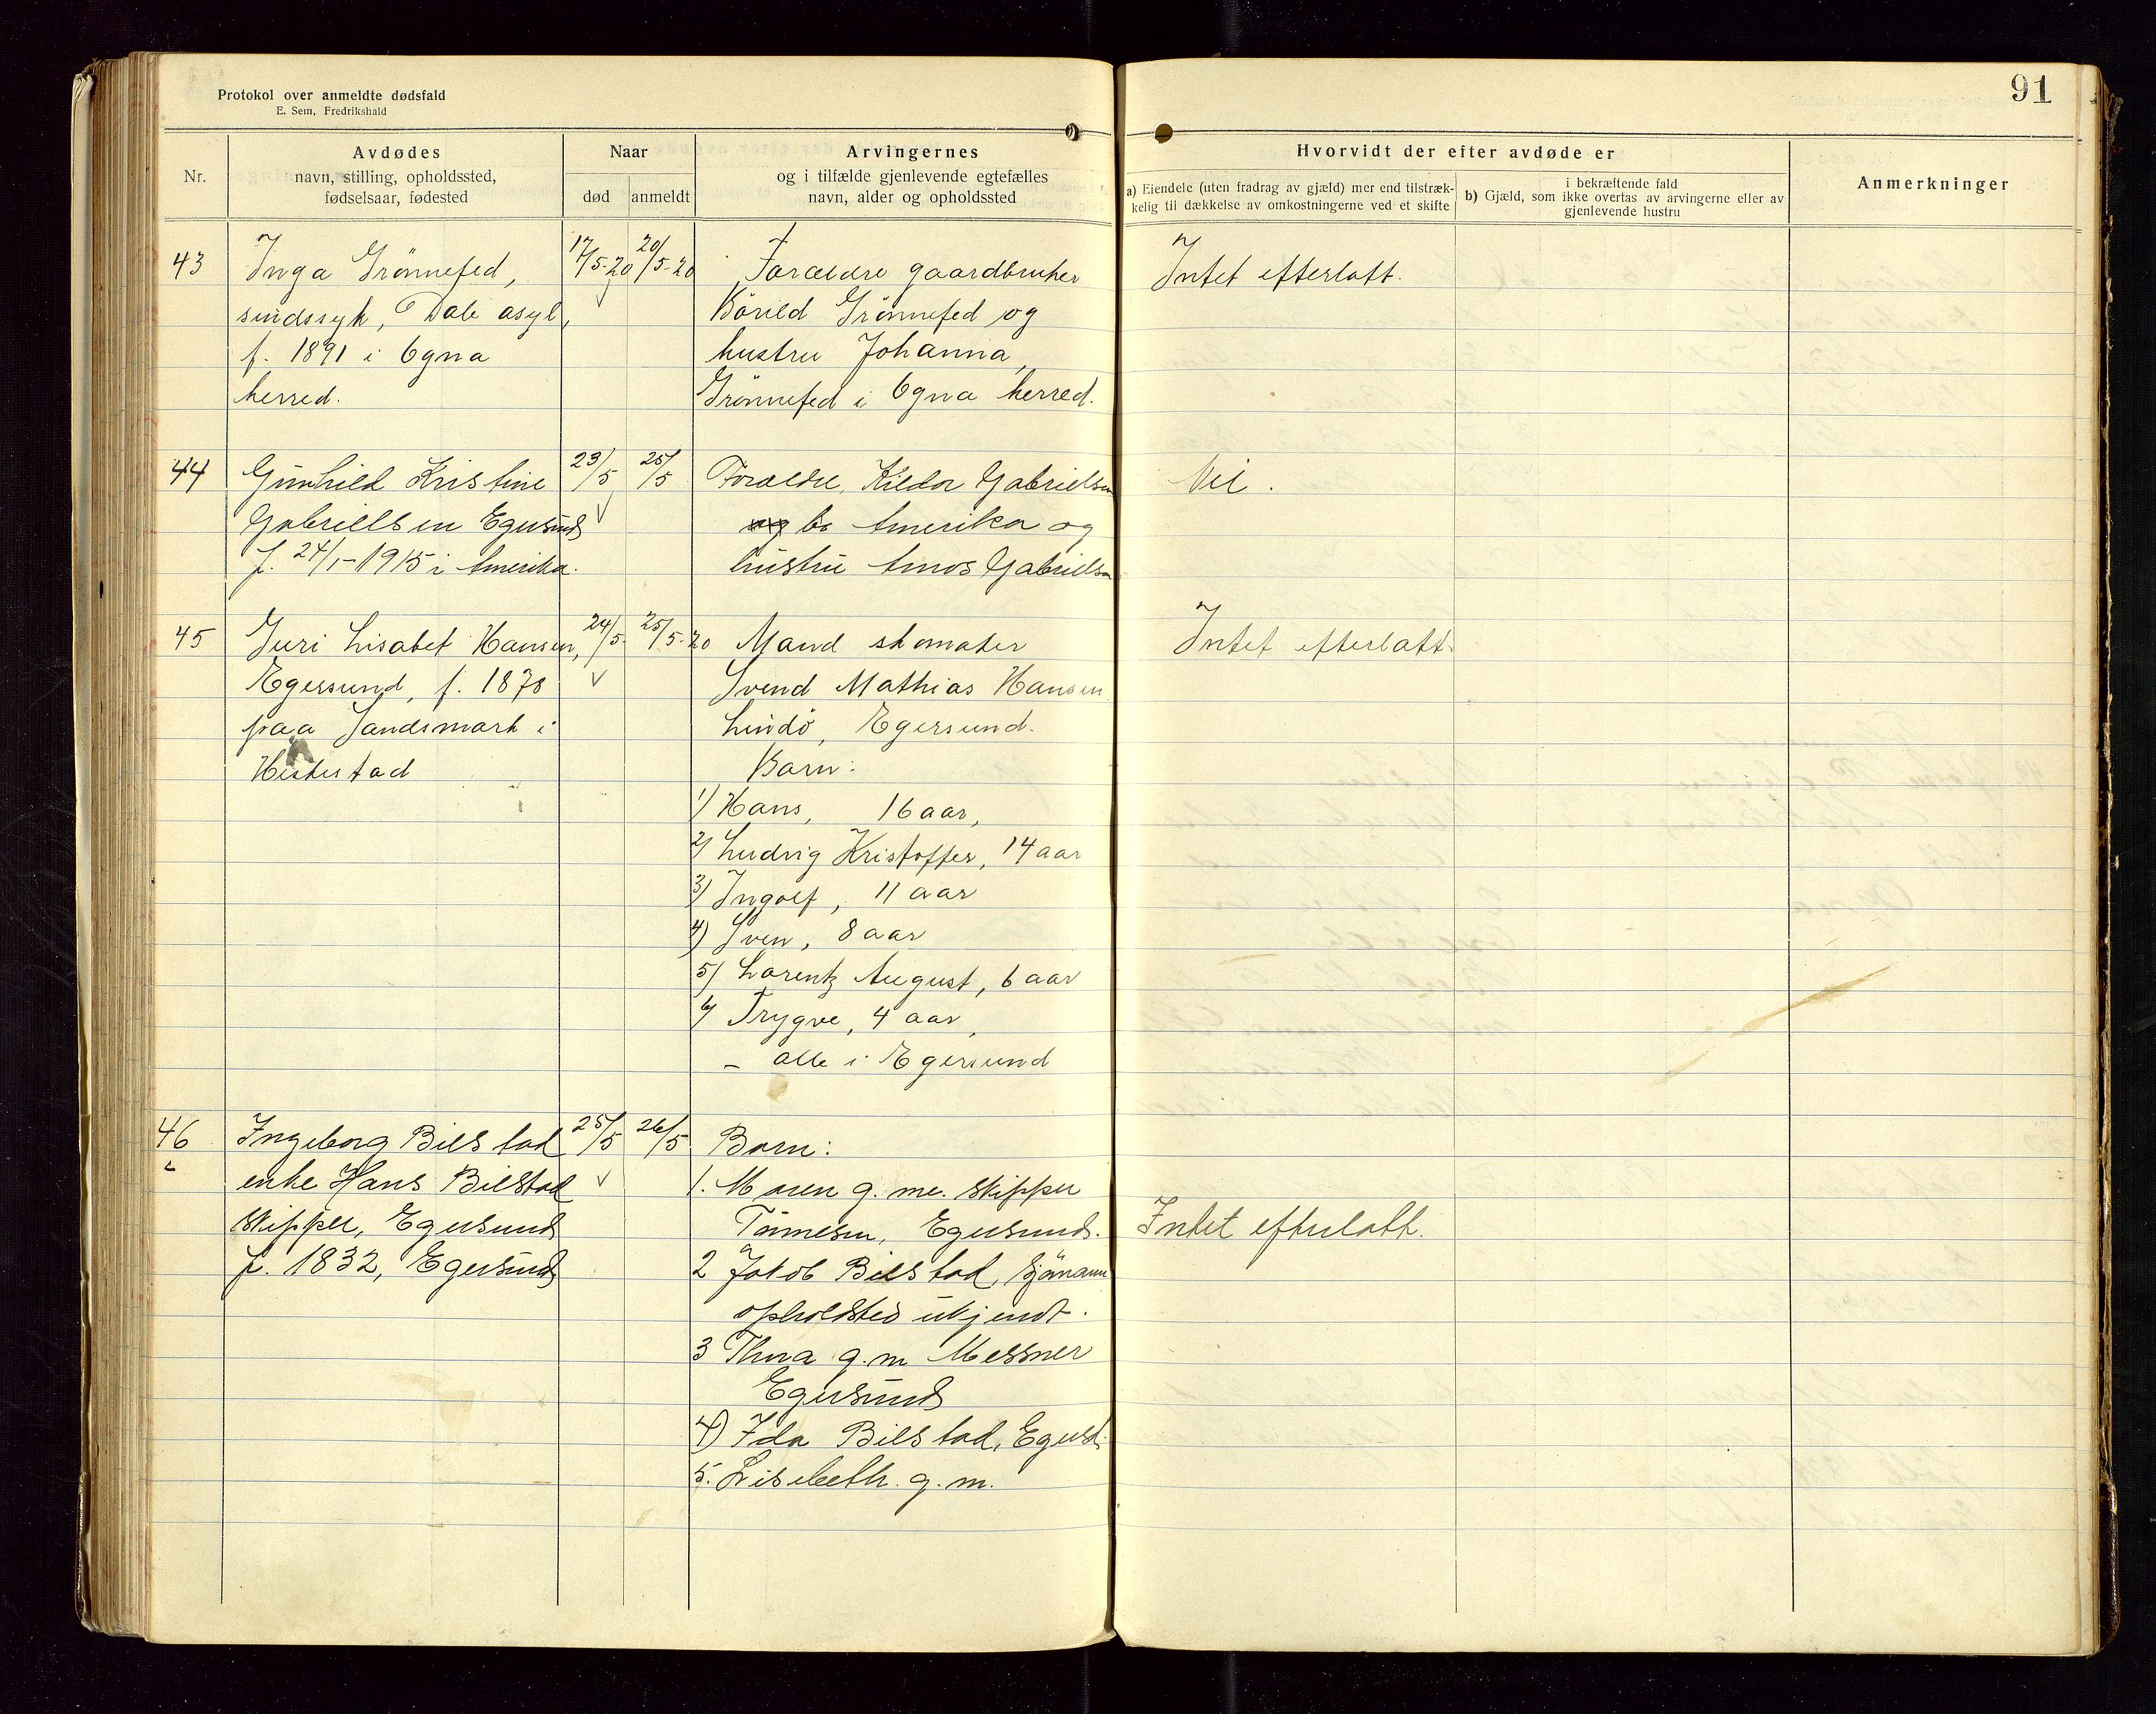 Protokol over anmeldte dødsfald
E. Sem, Fredrikshald
91
Nr.
Avdødes
navn, stilling, opholdssted,
fødselsaar, fødested
Naar
død
anmeldt
Arvingernes
og i tilfælde gjenlevende egtefælles
navn, alder og opholdssted
Hvorvidt der efter avdøde er
a) Eiendele (uten fradrag av gjæld) mer end tilstræk-
kelig til dækkelse av omkostningerne ved et skifte
i bekræftende fald
b) Gjæld, som ikke overtas av arvingerne eller av
gjenlevende hustru
Anmerkninger
43
Inga Grønnefed,
sindssyk, Dale asyl,
f. 1891 i Ogna
herred.
17/5-20
20/5-20
Forældre gaardbruker
Bårild Grønnefed og
hustru Johanna,
Grønnefed i Ogna herred.
Intet efterlatt.
44
Gunhild Kristine
Gabrielsen Egersund
f. 24/1-1915 i Amerika.
23/5
25/5
Forældre, Kildor Gabrielsen
og bs Amerika og
hustru Amos Gabrielsen
Nil.
45
Guri Lisabet Hansen,
Egersund, f. 1878
paa Sandsmark i
Hestestad
24/5-
25/5-20
Mand skomaker
Svend Mathias Hansen
Lindö, Egersund.
Barn:
1) Hans, 16 aar,
2) Ludvig Kristoffer, 14 aar
3) Ingolf, 11 aar
4) Sven, 8 aar
5) Lorentz August, 6 aar
6) Trygve, 4 aar,
- alle i Egersund
Intet efterlatt.
46
Ingeborg Bilstad
enke Hans Bilstad
skipper, Egersund
f. 1832, Egersund
25/5
26/5
Barn:
1. Maren g. me. skipper
Tönnesen, Egersund.
2 Jakob Bilstad, sjömann
opholdsted ukjendt.
3 Thea g. m Messner
Egersund
4) Ida Bilstad, Egersd.
5. Lisebeth. g. m.
Intet efterlatt.